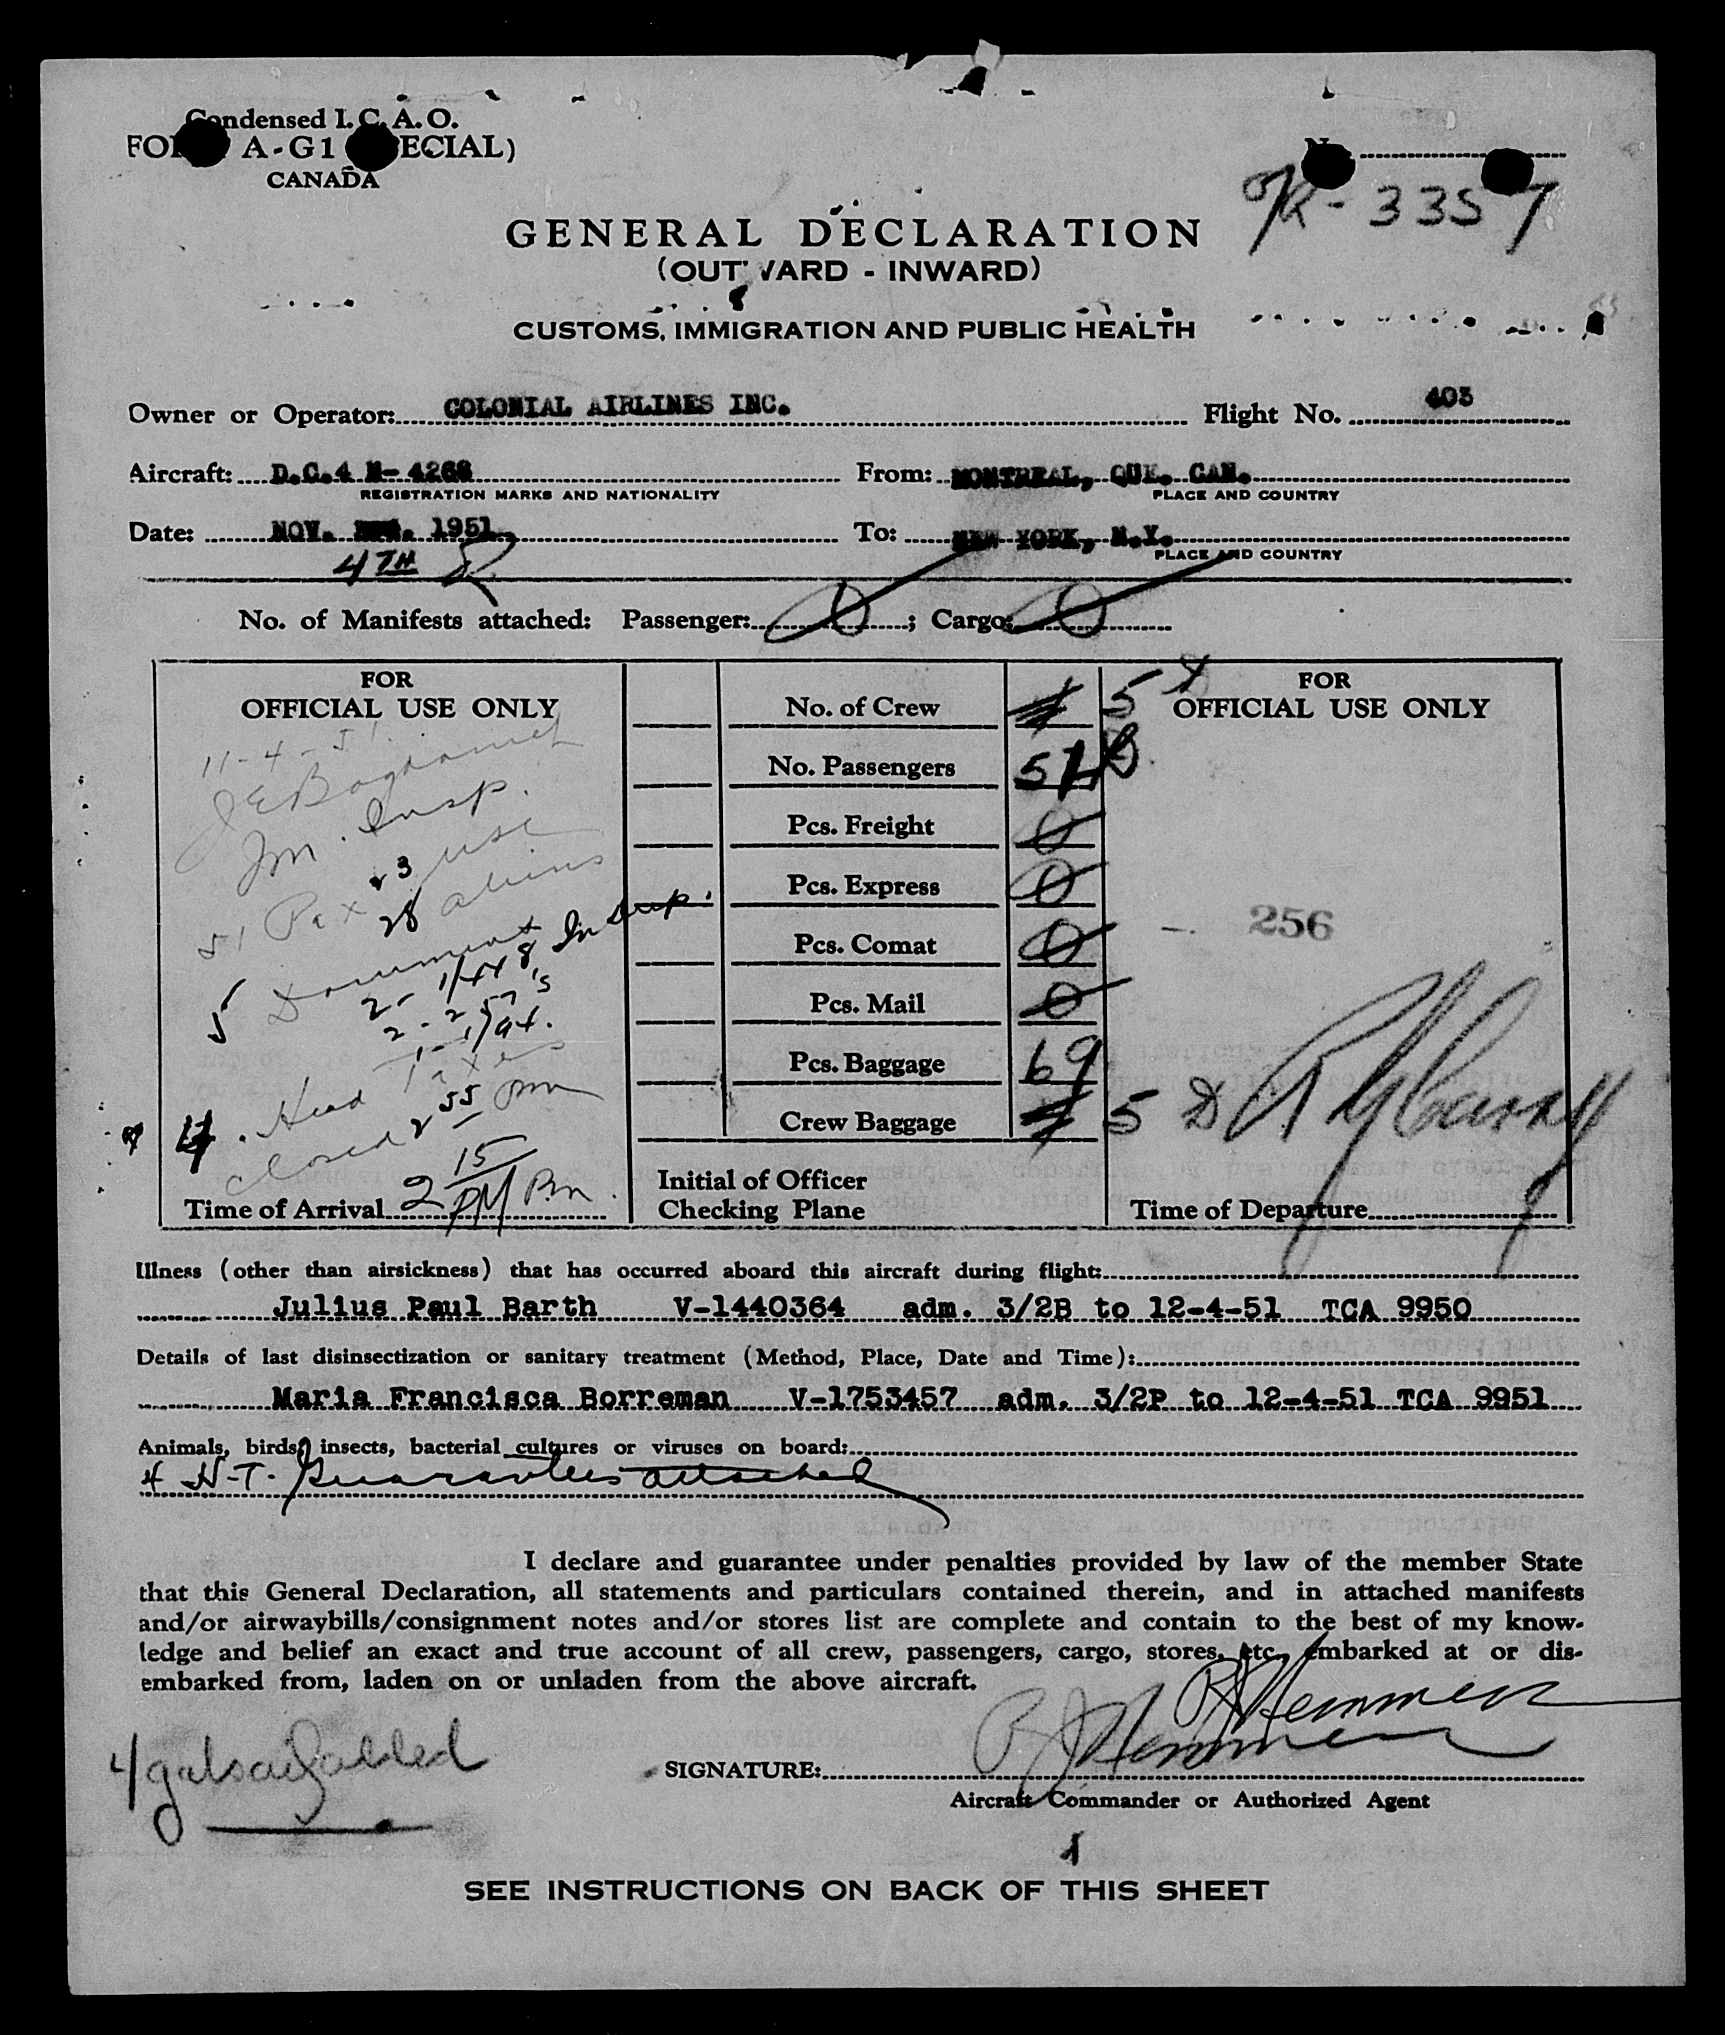 Condensed I.C.A.O.
A-G1
CANADA
OK-3357
GENERAL DECLARATION
(OUTWARD - INWARD)
CUSTOMS, IMMIGRATION AND PUBLIC HEALTH
Owner or Operator: COLONIAL AIRLINES INC. Flight No. 403
Aircraft: D.C.4 N-4268 From: MONTREAL, QUE. CAN.
REGISTRATION MARKS AND NATIONALITY PLACE AND COUNTRY
Date: NOV. 1951 To: NEW YORK, N.Y.
4TH PLACE AND COUNTRY
No. of Manifests attached: Passenger: 0 ; Cargo: 0
FOR
OFFICIAL USE ONLY
11-4-51.
Im. Insp.
51 Pax 23 USC
28 Aliens
5 Document
2 - 257's
4 Head Taxes
closed 2 55 pm
Time of Arrival 2 15 PM P.m.
No. of Crew 5
No. Passengers 51
Pcs. Freight 0
Pcs. Express 0
Pcs. Comat 0
Pcs. Mail 0
Pcs. Baggage 69
Crew Baggage 5
Initial of Officer
Checking Plane
FOR
OFFICIAL USE ONLY
256
Time of Departure
Illness (other than airsickness) that has occurred aboard this aircraft during flight:
Julius Paul Barth V-1440364 adm. 3/2B to 12-4-51 TCA 9950
Details of last disinsectization or sanitary treatment (Method, Place, Date and Time):
Maria Francisca Borreman V-1753457 adm. 3/2P to 12-4-51 TCA 9951
Animals, birds, insects, bacterial cultures or viruses on board:
4 H-T. Guarantees attached
I declare and guarantee under penalties provided by law of the member State
that this General Declaration, all statements and particulars contained therein, and in attached manifests
and/or airwaybills/consignment notes and/or stores list are complete and contain to the best of my know-
ledge and belief an exact and true account of all crew, passengers, cargo, stores, etc., embarked at or dis-
embarked from, laden on or unladen from the above aircraft.
4 gals added
SIGNATURE:
Aircraft Commander or Authorized Agent
SEE INSTRUCTIONS ON BACK OF THIS SHEET